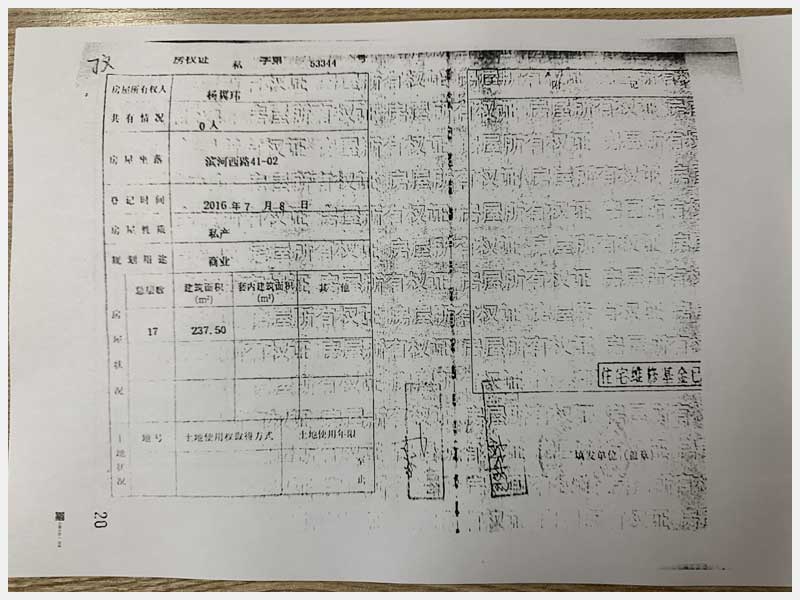 房权证 私 字第 53344 号
房屋所有权人 杨冀玮
共有情况 0人
房屋坐落 滨河西路41-02
登记时间 2016年7月8日
房屋性质 私产
规划用途 商业
附 记
房屋状况
总层数 建筑面积(m²) 套内建筑面积(m²) 其他
17 237.50
住宅维修基金已
土地状况
地号 土地使用权取得方式 土地使用年限
至
止
填发单位(盖章)
20